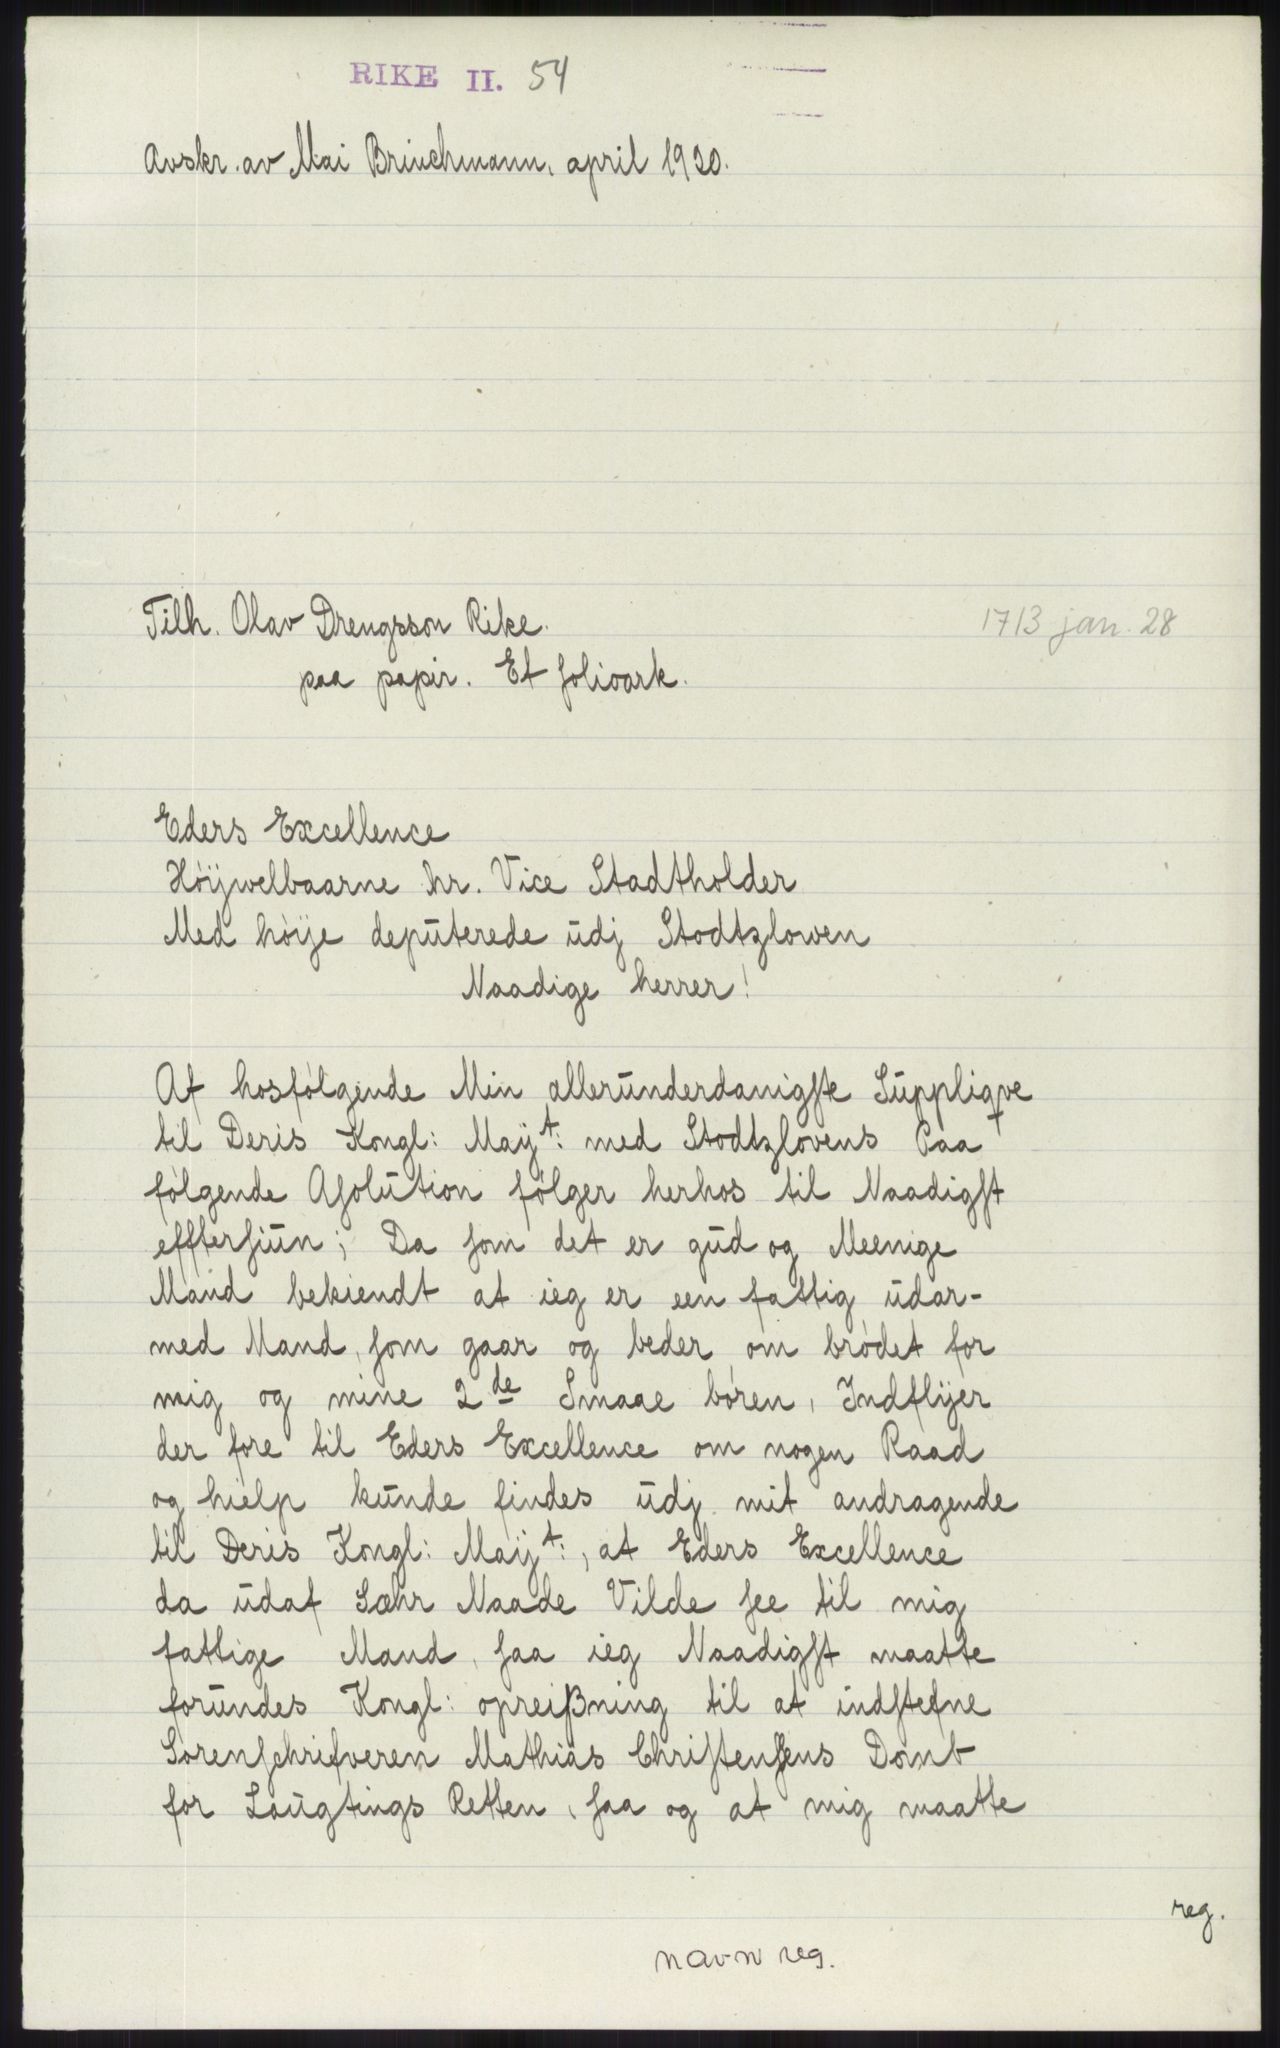 RIKE II. 54
Avskr. av Mai Brinchmann, april 1920.
Tilh. Olav Drengsson Rike.
1713 jan. 28
paa papir. Et folioark.
Eders Excellence
Höÿwelbaarne hr. Vice Stadtholder
Med höije deputerede udj Stodtzlowen
Naadige herrer!
Af hosfølgende Min allerunderdanigste Suppliqve
til Deris Kongl: Maÿt: med Stodtzlovens Paa
følgende Asolution følger herhos til Naadigst
efftersiun; Da som det er gud og Meenige
Mand bekiendt at ieg er een fattig udar-
med Mand, som gaar og beder om brødet for
mig og mine 2de Smaae børen, Indflÿer
der fore til Eders Excellence om nogen Raad
og hielp kunde findes udj mit andragende
til Deris Kongl: Maÿt:, at Eders Excellence
da udaf Sæhr Naade Vilde see til mig
fattige Mand, saa ieg Naadigst maatte
forundes Kongl: opreißning til at indstefne
Sorenschrifveren Mathias Christensens Domb
for Laugtings Retten, saa og at mig maatte
reg.
navn reg.